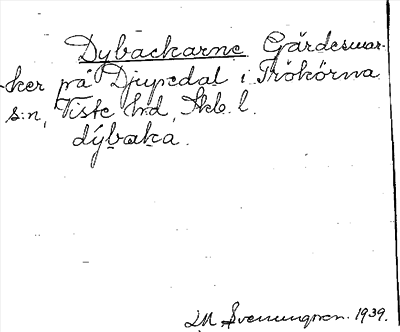 Dybackarne Gärdesmar-
ker på Djupedal i Trökörna
s:n, Viste hrd, Skb. l.
dýbaka.
LM Svenungsson. 1939.